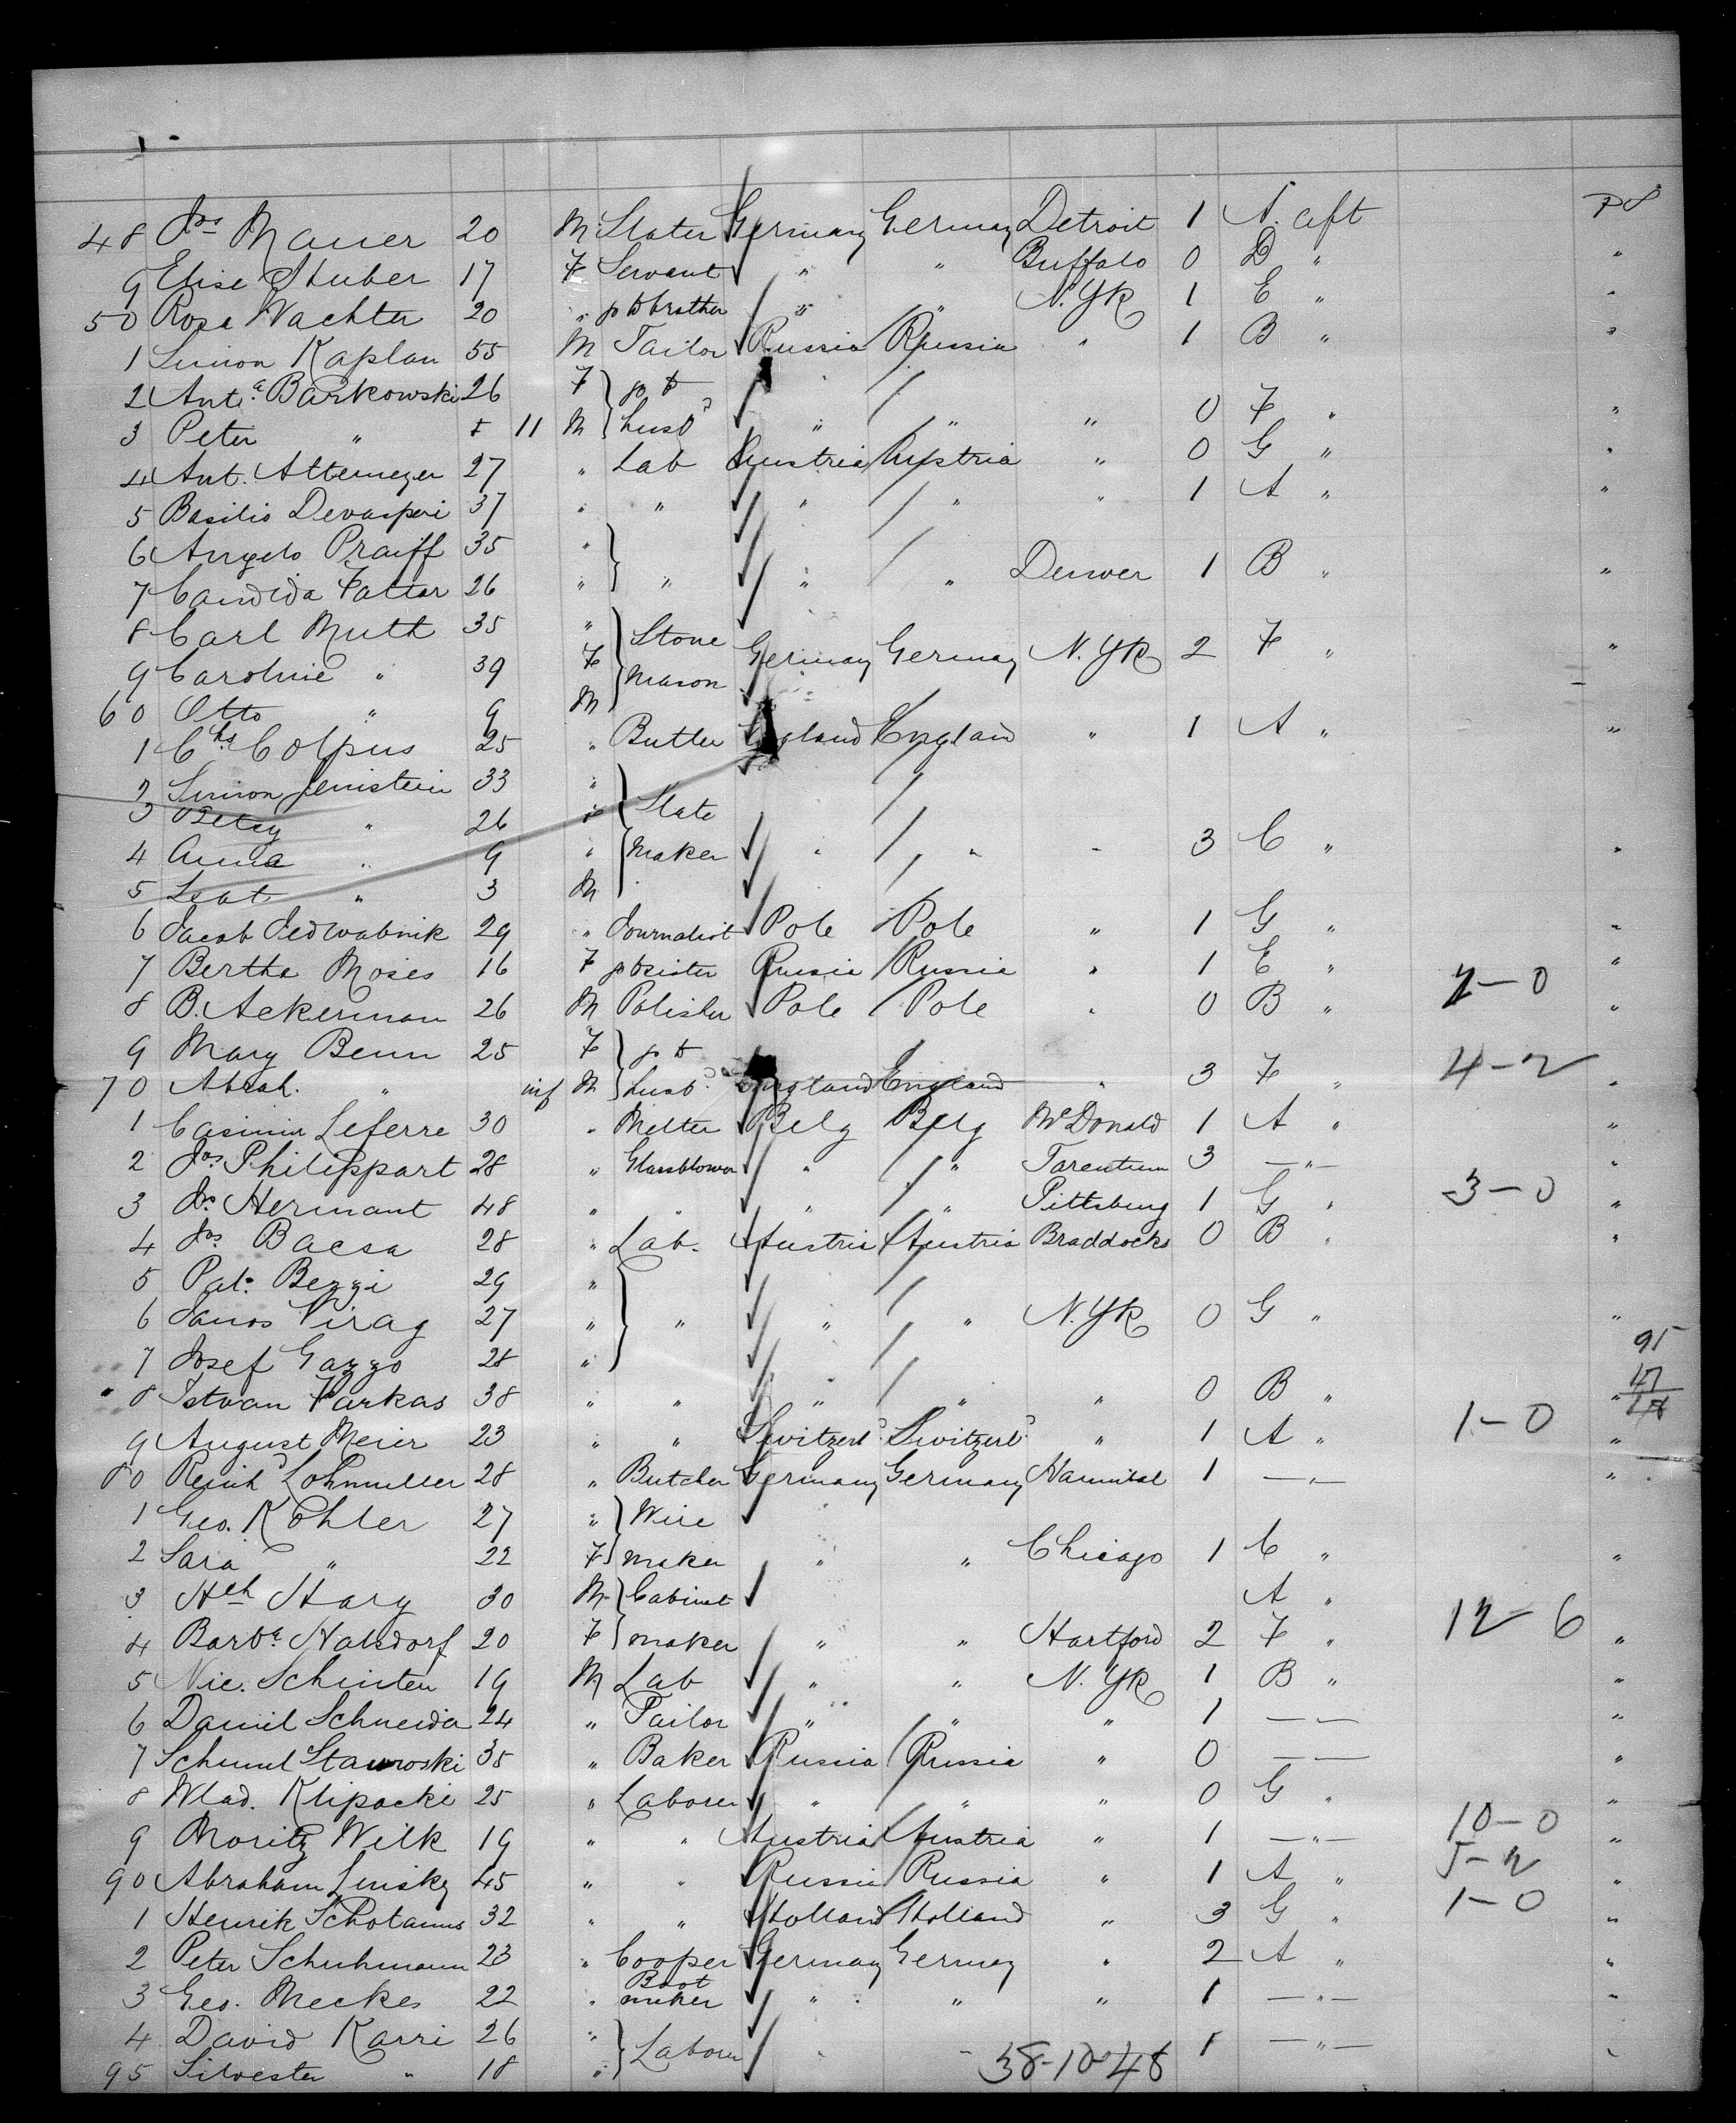 48 Jos Mauer 20 M Slater Germany Germany Detroit 1 A. aft P8
9 Elise Stuber 17 F Servant " " Buffalo 0 D " "
50 Rosa Wachter 20 " to brother " " N. YK 1 E " "
1 Simon Kaplan 55 M Tailor Russia Russia " 1 B " "
2 Anta Barkowski 26 F } to
3 Peter " 11 M } husbd " " " 0 F " "
4 Ant. Attemeyer 27 " Lab Austria Austria " 0 G " "
5 Basilio Devasperi 37 " " " " " 1 A " "
6 Angelo Praiff 35 " }
7 Candida Fattor 26 " } " " " Denver 1 B " "
8 Carl Muth 35 " } Stone
9 Caroline " 39 F } Mason Germany Germany N. YK 2 F " "
60 Otto " 9 M
1 Chs Colpus 25 " Butler England England " 1 A " "
2 Simon 33 " } Slate
3 Betsy " 26 F
4 Anna " 9 " } Maker " " " 3 C " "
5 Leat " 3 M
6 Jacob Jedwabnik 29 " Journalist Pole Pole " 1 G " "
7 Bertha Moses 16 F to sister Russia Russia " 1 E " "
8 B. Ackerman 26 M Polisher Pole Pole " 0 B " 2-0 "
9 Mary Benn 25 F } to
70 Abrah. " inf M } husbd England England " 3 F " 4-2 "
1 Casimir Leferre 30 " Melter Belg Belg McDonald 1 A " "
2 Jos Philippart 28 " Glassblower " " Tarentum 3 — " — "
3 Js Hermant 48 " " " " Pittsburg 1 G " 3-0 "
4 Jos Bacsa 28 " Lab. Austria Austria Braddocks 0 B " "
5 Pal. Bezzi 29 " }
6 Janos Virag 27 " } " " " N. YK 0 G " "
7 Josef Gazzo 28 " } 95
8 Istvan Farkas 38 " " " " " 0 B " " 47
9 August Meier 23 " " Switzerld Switzerld " 1 A " 1-0 "
80 Reinhd Lohmuller 28 " Butcher Germany Germany Hannibal 1 — " — "
1 Geo. Kohler 27 " } Wire
2 Sara " 22 F } maker " " Chicago 1 C " "
3 Hch Harg 30 M } Cabinet A "
4 Barba Halsdorf 20 F } maker " " Hartford 2 F " 12-6 "
5 Nic. Schinten 19 M Lab " " N. YK 1 B " "
6 Daniel Schneider 24 " Tailor " " " 1 — " — "
7 Schmul Stawroski 35 " Baker Russia Russia " 0 — " — "
8 Wlad. Klipacki 25 " Laborer " " " 0 G " "
9 Moritz Wilk 19 " " Austria Austria " 1 — " — 10-0 "
90 Abraham Linsky 45 " " Russia Russia " 1 A " 5-2 "
1 Henrik Schotanus 32 " " Holland Holland " 3 G " 1-0 "
2 Peter Schuhmann 23 " Cooper Germany Germany " 2 A " "
3 Geo. Meckes 22 " Boot maker " " " 1 — " — "
4 David Karri 26 " } Laborer " " 1 — " — "
95 Silvester " 18 " } 38-10-48